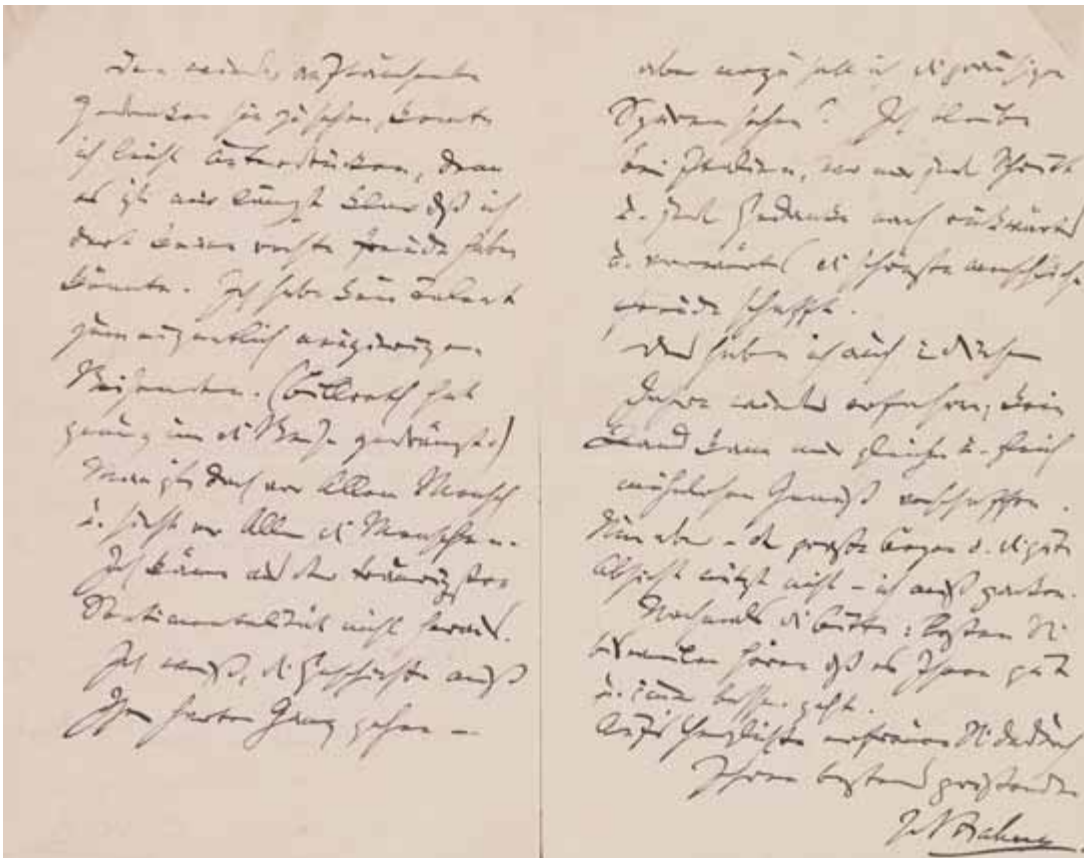 Den wieder auftauchenden
Gedanken hin zu sehen, konnte
ich leicht unterdrücken, denn
es ist mir längst klar daß ich
dort keine rechte Freude haben
könnte. Ich habe kein Talent
zum eigentlich neugierigen
Reisenden. (Billroth hat
genug um die Reise gedrängt.)
Man ist doch vor Allem Mensch
u. sieht vor Allem die Menschen.
Ich käme aus der traurigsten
Sentimentalität nicht heraus.
Ich weiß, die Geschichte muß
ihren harten Gang gehen –
aber wozu soll ich die grausigen
Spuren sehen? Ich bleibe
bei Italien, wo uns jeder Schritt
u. jeder Gedanke nach rückwärts
u. vorwärts die schönste menschliche
Freude schafft.
Das habe ich auch in diesem
wieder erfahren, kein
Land kann uns gleiche u. gleich
mühelosen Genuß verschaffen.
Nun aber – der größte Bogen u. die gute
Absicht nützt nicht – ich muß
Nochmals die Bitte: lassen Sie
bisweilen hören daß es Ihnen gut
u. immer besser geht.
Aufs Herzlichste erfreuen Sie dadurch
Ihren bestens grüßenden
J. Brahms.